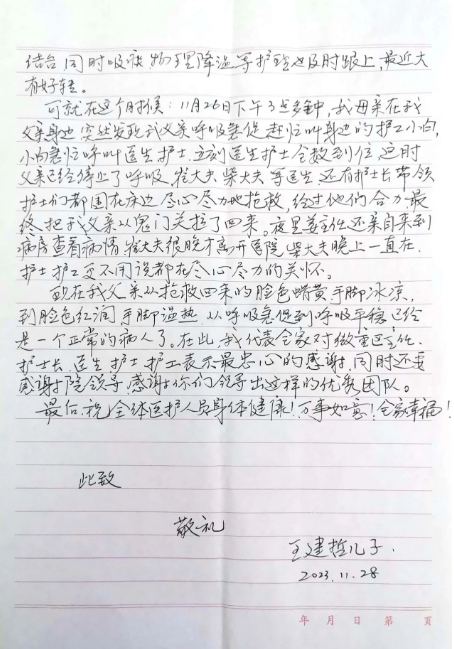 结合同时吸痰物理降温等护理也及时跟上,最近大
有好转。
可就在这个时候:11月26日下午3点多钟,我母亲在我
父亲身边突然发现我父亲呼吸急促赶忙叫身边的护工小白,
小白急忙呼叫医生护士,立刻医生护士全数到位,这时
父亲已经停止了呼吸,大夫、柴大夫等医生,还有护士长带领
护士们都围在床边尽心尽力地抢救,经过他们合力最
终把我父亲从鬼门关拉了回来。夜里姜主任还亲自来到
病房查看病情,大夫很晚才离开医院,柴大夫晚上一直在,
护士护工更不用说都在尽心尽力的关怀。
现在我父亲从抢救回来的脸色蜡黄手脚冰凉,
到脸色红润手脚温热,从呼吸急促到呼吸平稳已经
是一个正常的病人了。在此我代表全家对主任、
护士长、医生护士护工表示最忠心的感谢,同时还要
感谢院领导,感谢你们领导出这样的优秀团队。
最后祝全体医护人员身体健康!万事如意!全家幸福!
此致
敬礼
王建哲儿子.
2023.11.28
年 月 日 第 页